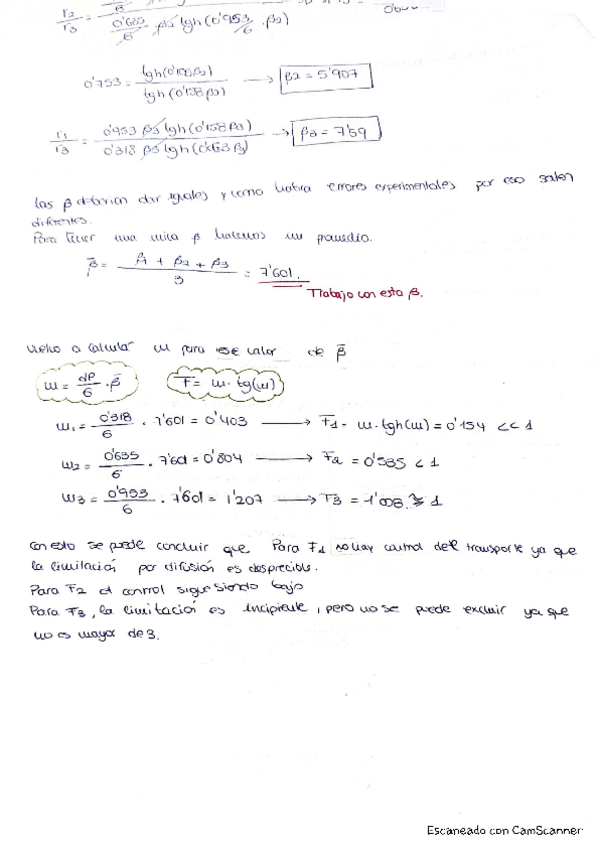 r2/r3 = 0'635/6 β2 tgh(0'953/6 · β2)
0'753 = tgh(0'106β2) / tgh(0'158β2) → β2 = 5'907
r1/r3 = 0'953 β3 tgh(0'158β3) / 0'318 β3 tgh(0'053β3) → β3 = 7'59
Las β deberían dar iguales y como habrá errores experimentales por eso salen
diferentes.
Para tener una única β hacemos un promedio.
β̄ = β1 + β2 + β3 / 3 = 7'601.
Trabajo con esta β.
Vuelvo a calcular w para ese valor de β̄
w = dP/6 · β̄ F = w · tg(w)
w1 = 0'318/6 · 7'601 = 0'403 → F1 = w·tgh(w) = 0'154 << 1
w2 = 0'635/6 · 7'601 = 0'804 → F2 = 0'535 < 1
w3 = 0'953/6 · 7'601 = 1'207 → F3 = 1'008 ≳ 1
Con esto se puede concluir que Para F1 no hay control del transporte ya que
la limitación por difusión es despreciable.
Para F2 el control sigue siendo bajo
Para F3, la limitación es incipiente, pero no se puede excluir ya que
no es mayor de 3.
Escaneado con CamScanner